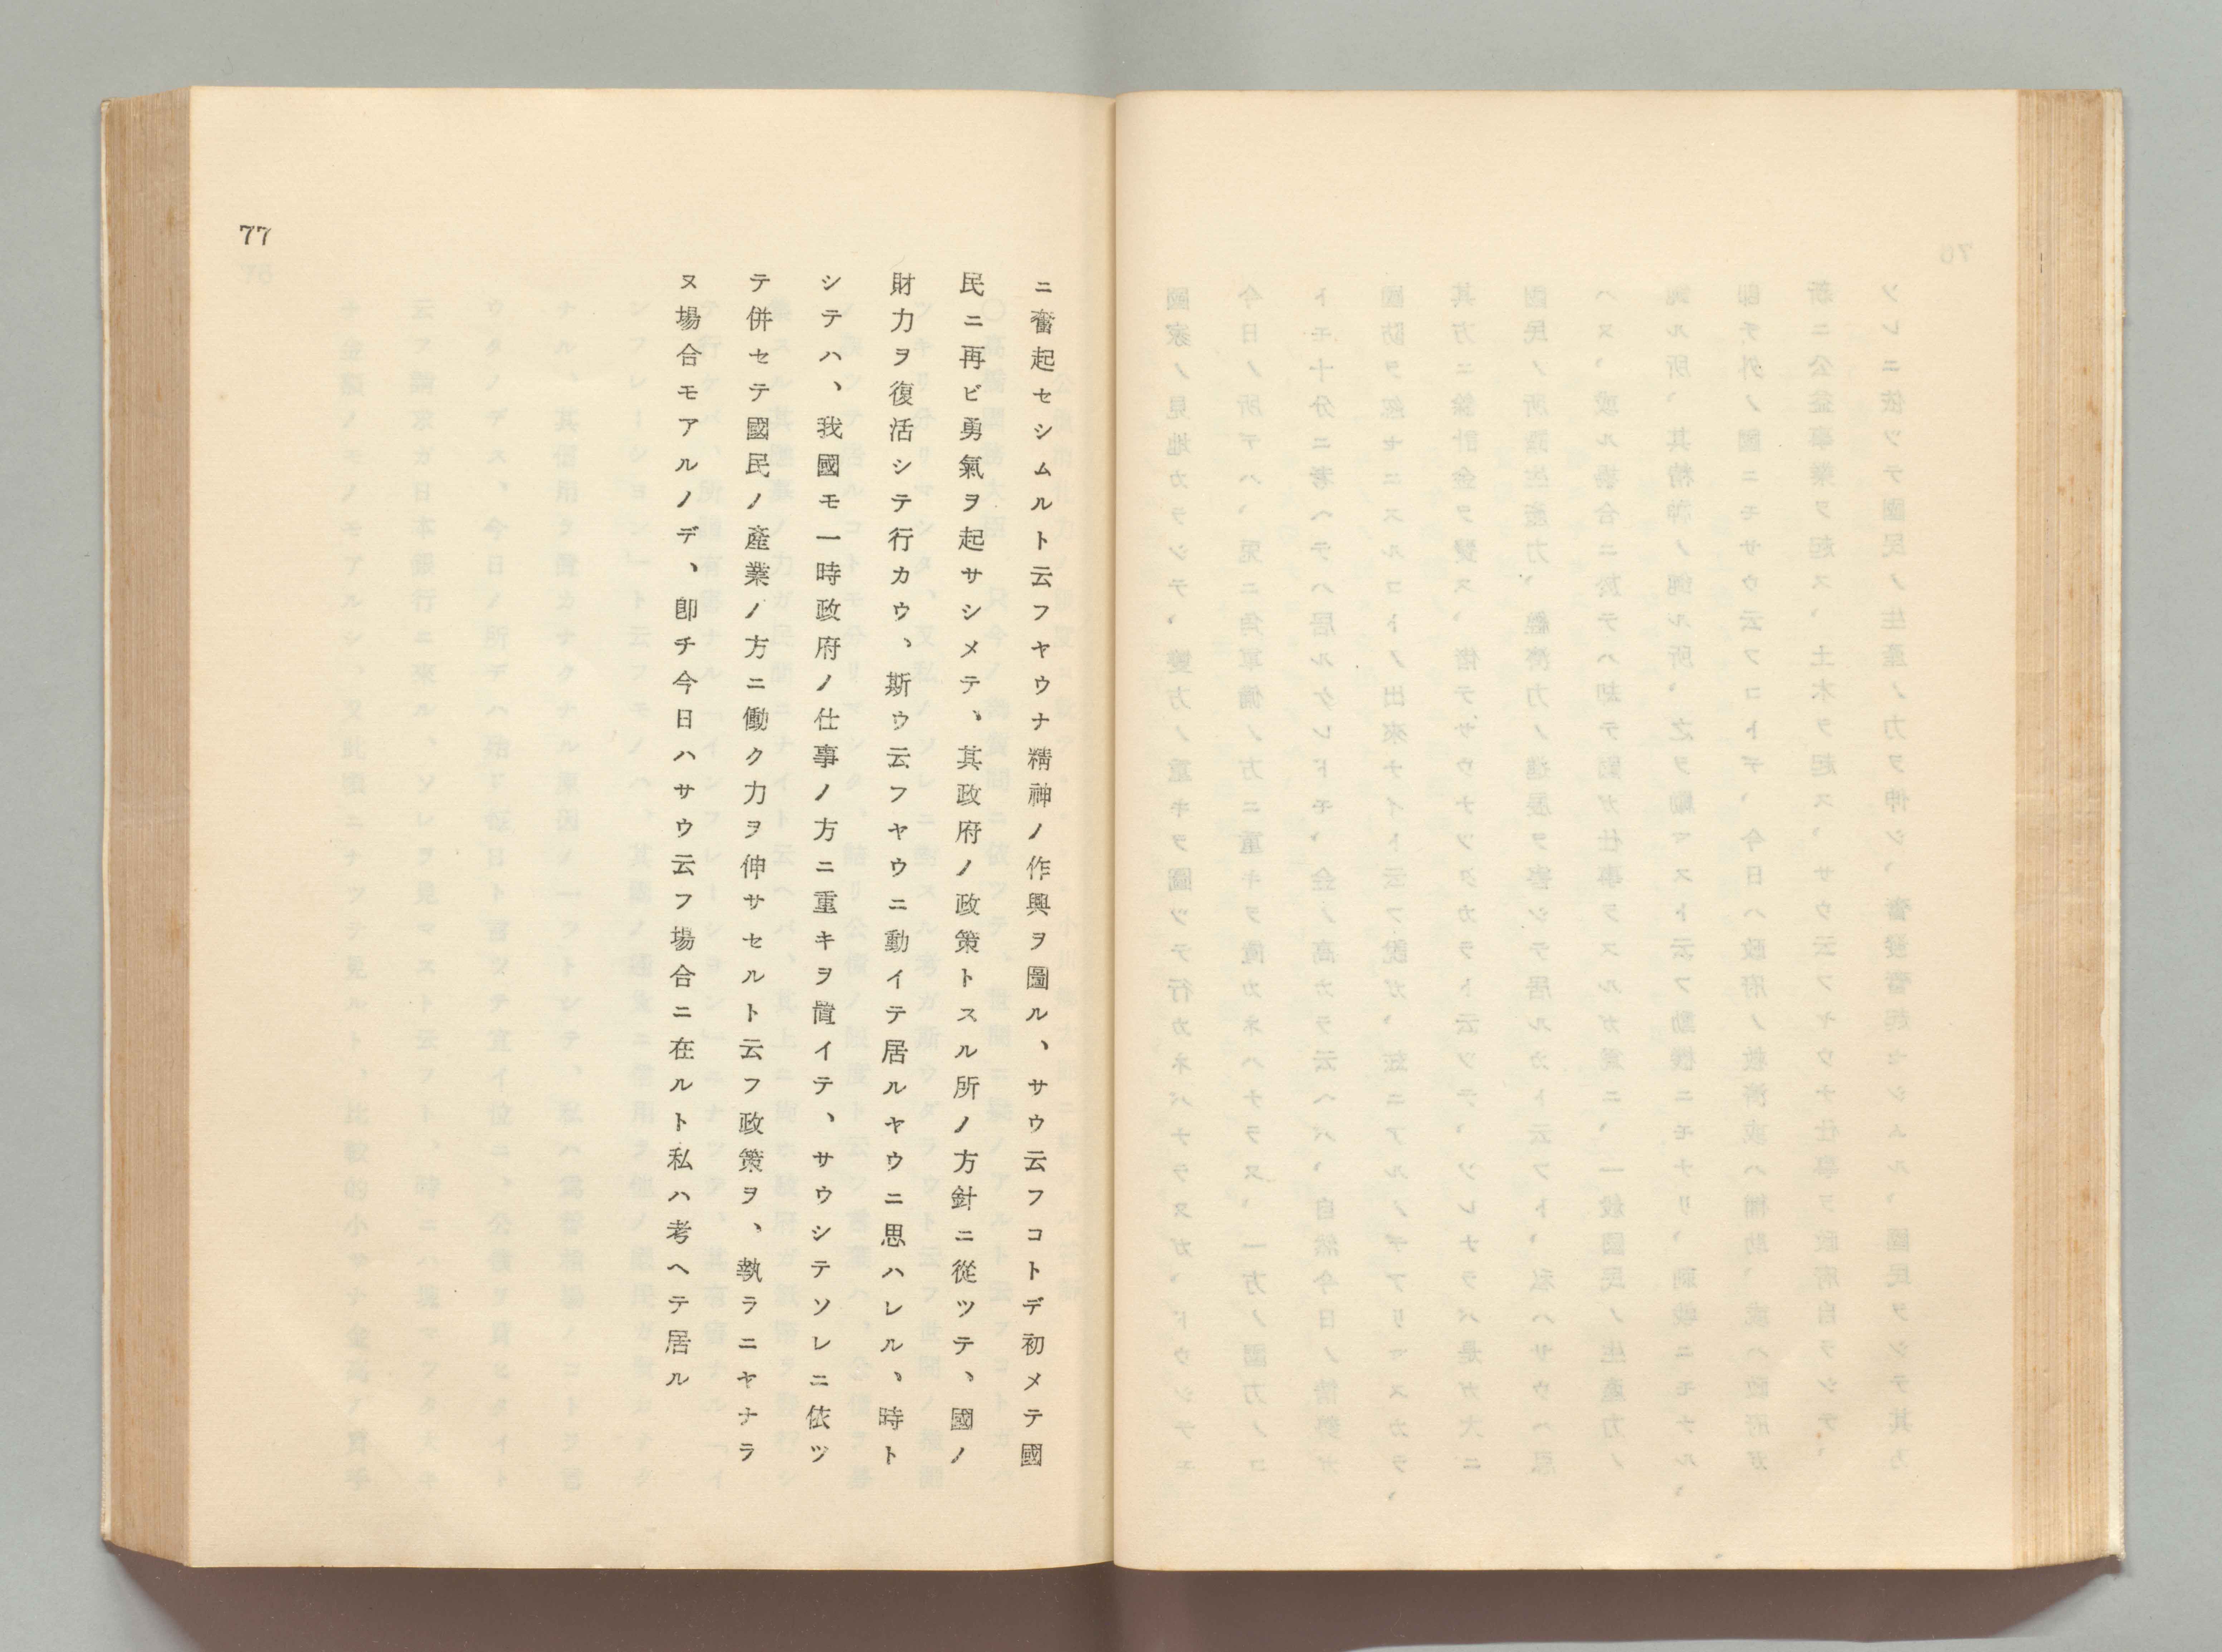 ニ奮起セシムルト云フヤウナ精神ノ作興ヲ圖ル、サウ云フコトデ初メテ國
民ニ再ビ勇氣ヲ起サシメテ、其政府ノ政策トスル所ノ方針ニ從ツテ、國ノ
財力ヲ復活シテ行カウ、斯ウ云フヤウニ動イテ居ルヤウニ思ハレル、時ト
シテハ、我國モ一時政府ノ仕事ノ方ニ重キヲ置イテ、サウシテソレニ依ツ
テ併セテ國民ノ產業ノ方ニ働ク力ヲ伸サセルト云フ政策ヲ、執ラニヤナラ
ヌ場合モアルノデ、卽チ今日ハサウ云フ場合ニ在ルト私ハ考ヘテ居ル
77